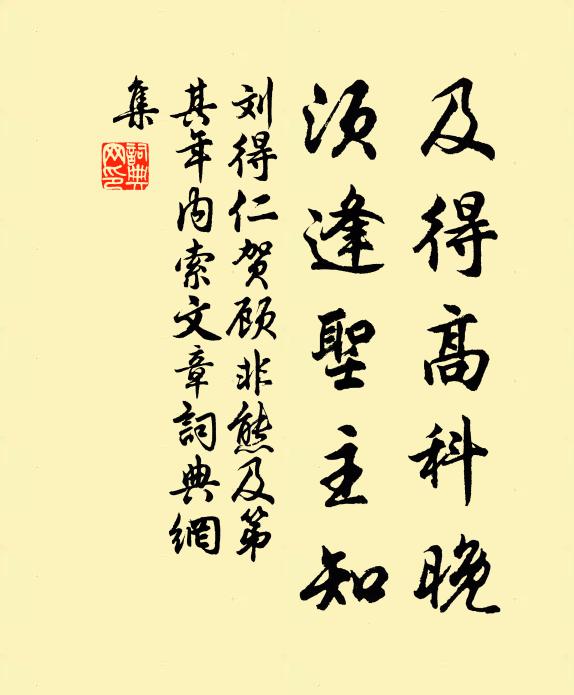 及得高科晚
须逢聖主知
刘得仁贺顾非熊及第
其年内索文章詞典網
集
詞典
网印